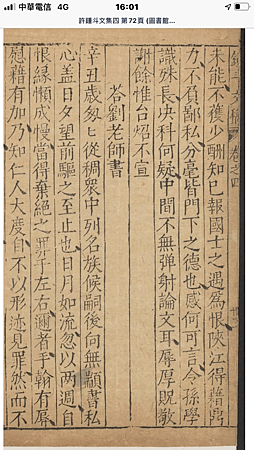 中華電信 4G
16:01
許鍾斗文集四 第72頁 (圖書館...
未能不獲少酬知已報國士之遇爲恨陝江得藉
力不負鄙私分毫皆門下之德也感何可言令孫學
識殊長決科何疑中間不無彈射論文耳辱厚貺敬
謝餘惟台炤不宣
荅劉老師書
辛丑歲匆匕從稠衆中列名族候嗣後向無顓書私
心盖日夕望前驅之至止也日月如流忽以兩週自
恨緣懶成慢當得棄絕之罪于左右邇者手翰有辱
慰藉有加乃知仁人大度自不以形迹見罪然而不